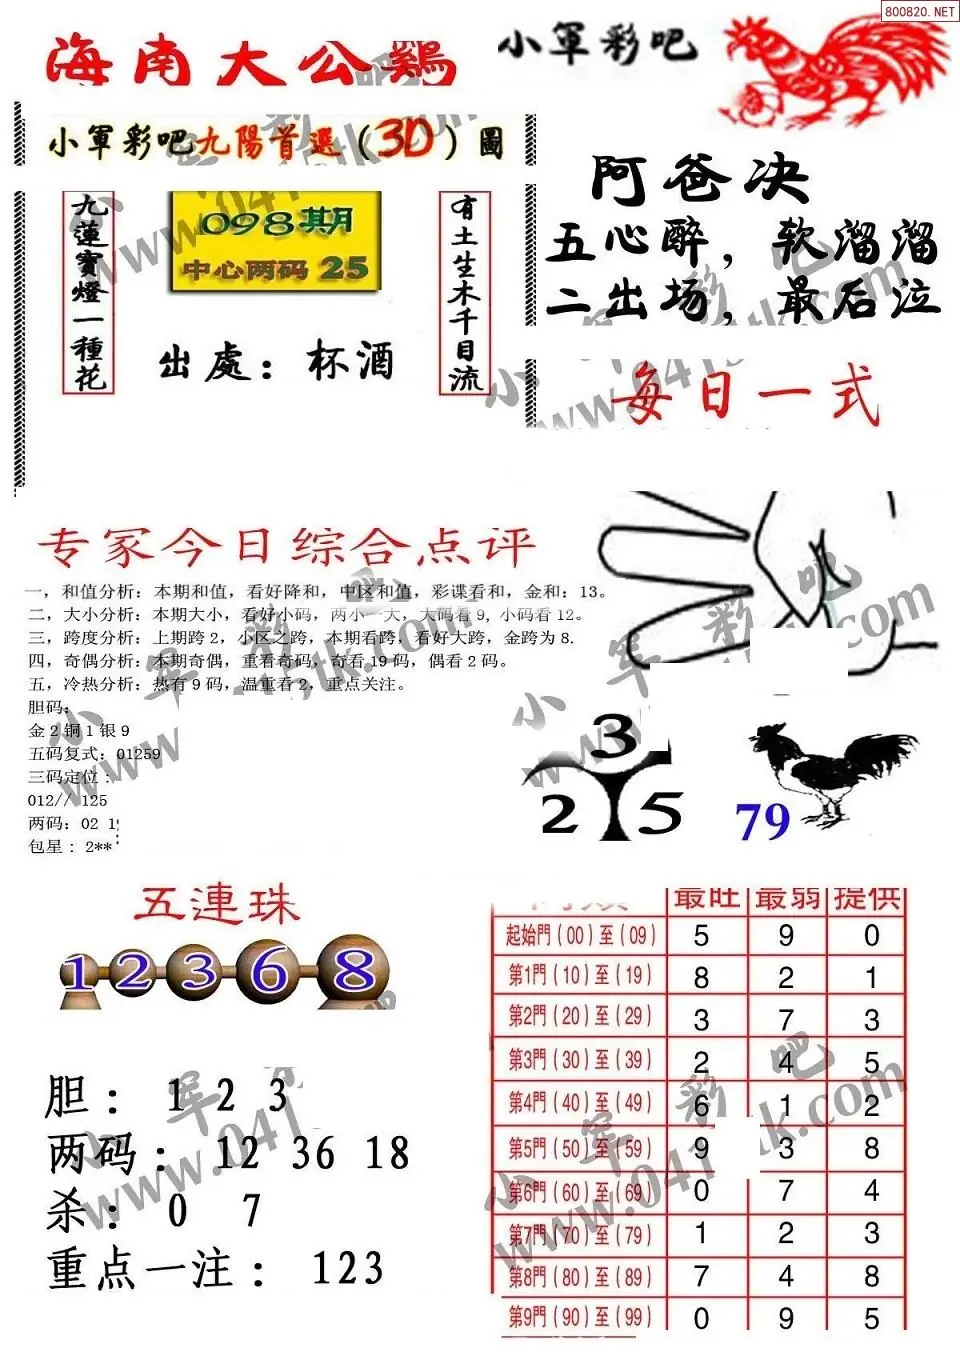 800820.NET
海南大公鷄
小軍彩吧
小軍彩吧九陽首選（3D）圖
九蓮寳燈一種花
098期
中心两码 25
有土生木千目流
出處：杯酒
阿爸决
五心醉，软溜溜
二出场，最后泣
每日一式
专家今日综合点评
一，和值分析：本期和值，看好降和，中区和值，彩谍看和，金和：13。
二，大小分析：本期大小，看好小码，两小一大，大码看9，小码看12。
三，跨度分析：上期跨2，小区之跨，本期看跨，看好大跨，金跨为8.
四，奇偶分析：本期奇偶，重看奇码，奇看19码，偶看2码。
五，冷热分析：热有9码，温重看2，重点关注。
胆码：
金2铜1银9
五码复式：01259
三码定位：
012// 125
两码：02 1
包星：2**
3
2 5
79
五連珠
1 2 3 6 8
胆： 1 2 3
两码： 12 36 18
杀： 0 7
重点一注： 123
最旺 最弱 提供
起始門（00）至（09） 5 9 0
第1門（10）至（19） 8 2 1
第2門（20）至（29） 3 7 3
第3門（30）至（39） 2 4 5
第4門（40）至（49） 6 1 2
第5門（50）至（59） 9 3 8
第6門（60）至（69） 0 7 4
第7門（70）至（79） 1 2 3
第8門（80）至（89） 7 4 8
第9門（90）至（99） 0 9 5
小军彩吧
www.041tk.com